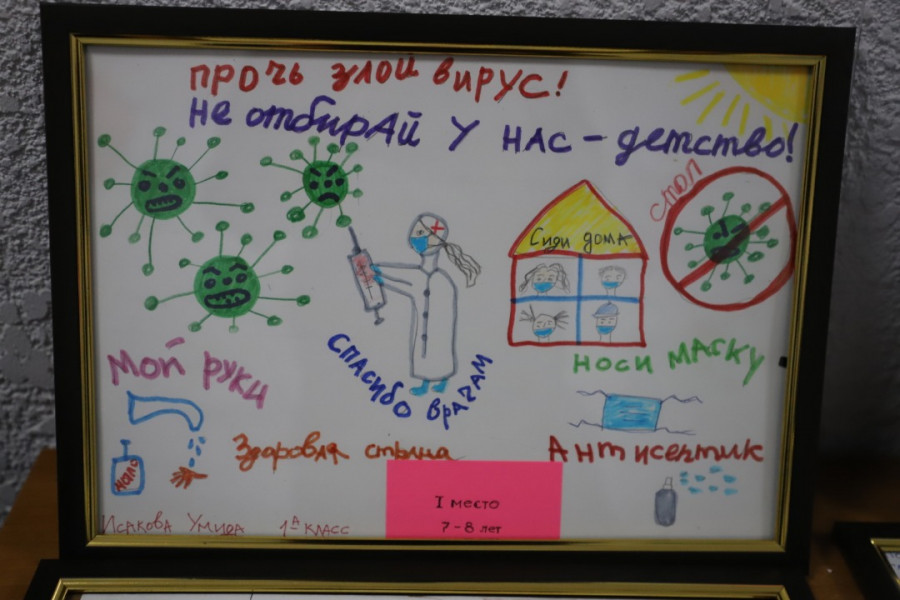 прочь злой вирус!
не отбирАй у нас - детство!
стоп
Сиди дома
Мой руки
Спасибо врачам
носи маску
Здоровая страна
Антисептик
мыло
I место
7 - 8 лет
Исакова Умида 1 А класс